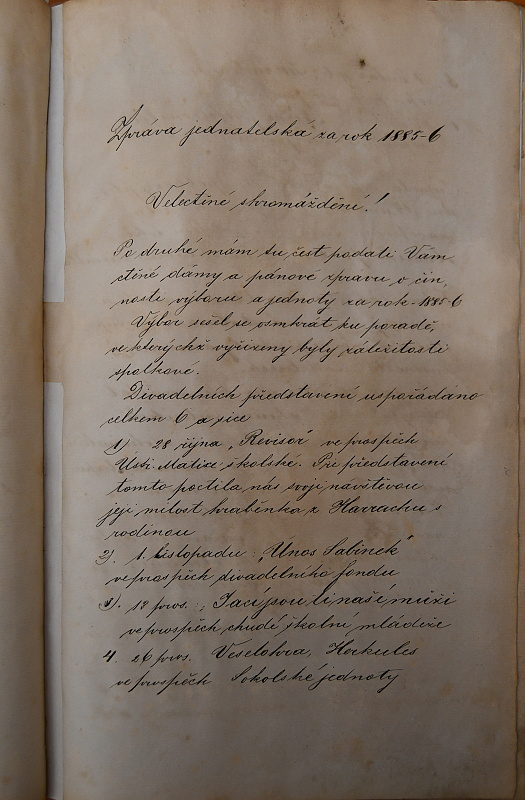 Zpráva jednatelská za rok 1885-6
Velectěné shromáždění!
Po druhé mám tu čest podati Vám
ctěné dámy a pánové zprávu o čin,
nosti výboru a jednoty za rok-1885-6
Výbor sešel se osmkrát ku poradě,
ve kterýchž vyřízeny byly záležitosti
spolkove.
Divadelních představení uspořádáno
celkem 6 a sice
1) 28 října „Revisor" ve prospěch
Ústř. Matice školské. Při představení
tomto poctila nás svojí návštěvou
její milost hraběnka z Harrachu s
rodinou
2). 1. listopadu „Únos Sabinek"
ve prospěch divadelního fondu
3). 12 pros. „Jací jsou ti naší muži
ve prospěch chudé školní mládeže
4. 26 pros. Veselohra, Herkules
ve prospěch Sokolské jednoty